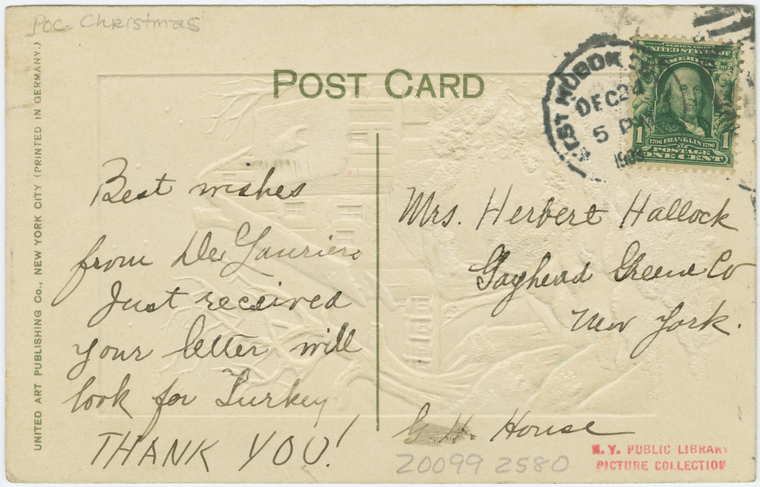 Poc Christmas
POST CARD
UNITED ART PUBLISHING CO., NEW YORK CITY (PRINTED IN GERMANY.)
Best wishes
from De
Just received
your letter will
look for Turkey
THANK YOU!
DEC 24
5 P
SERIES 1902
UNITED STATES OF
AMERICA
1706 FRANKLIN 1790
1 1
POSTAGE
ONE CENT
Mrs. Herbert Hallock
Gayhead Greene Co
New York.
G H. House
20099 2580
N.Y. PUBLIC LIBRARY
PICTURE COLLECTION